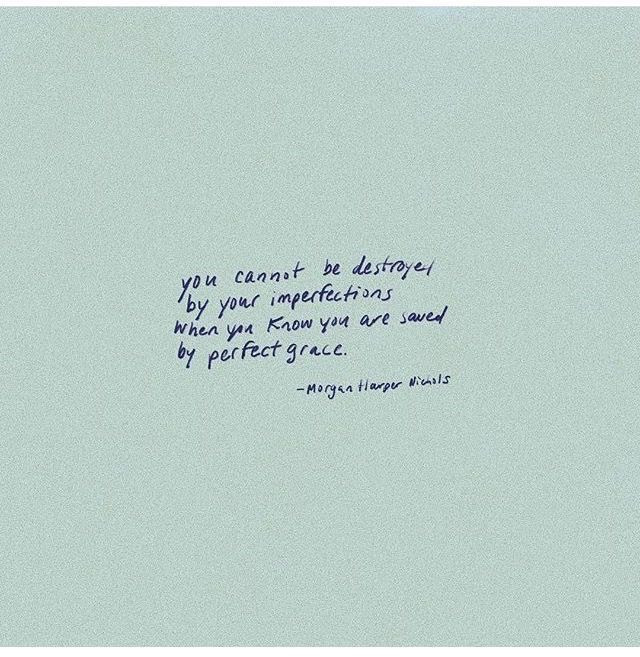 you cannot be destroyed
by your imperfections
when you know you are saved
by perfect grace.
-Morgan Harper Nichols